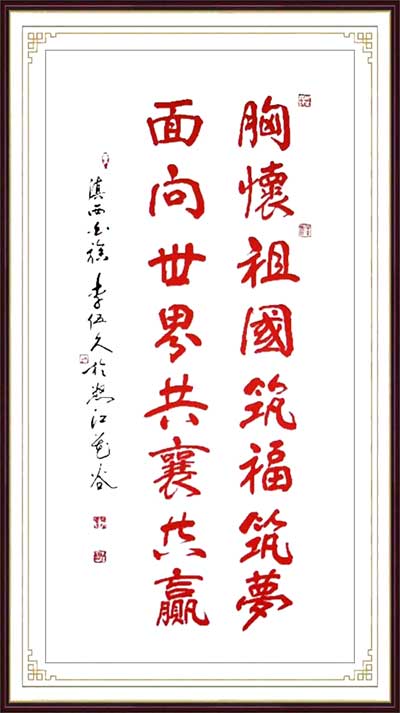 胸懷祖國筑福筑夢
面向世界共襄共贏
滇西白族李伍久於怒江花谷